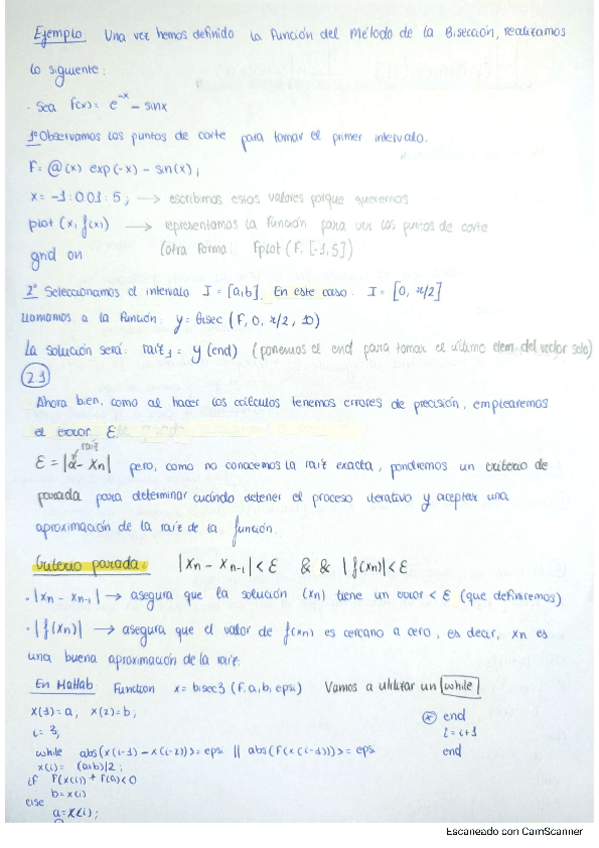 Ejemplo: Una vez hemos definido la función del Método de la Bisección, realizamos
lo siguiente:
· Sea f(x) = e^-x - sinx
1º Observamos los puntos de corte para tomar el primer intervalo.
F = @(x) exp(-x) - sin(x);
x = -1:001:5; → escribimos estos valores porque queremos
plot (x, f(x)) → representamos la función para ver los puntos de corte
grid on (otra forma: Fplot (F, [-1,5])
2º Seleccionamos el intervalo I = [a,b]. En este caso: I = [0, π/2]
Llamamos a la función: y = bisec (F, 0, π/2, 10)
La solución será: raíz1 = y(end) (ponemos el end para tomar el último elem. del vector solo)
2.1
Ahora bien, como al hacer los cálculos tenemos errores de precisión, emplearemos
el error ε.
raíz
ε = |α - xn| pero, como no conocemos la raíz exacta, pondremos un criterio de
parada para determinar cuándo detener el proceso iterativo y aceptar una
aproximación de la raíz de la función.
Criterio parada: |xn - xn-1| < ε && |f(xn)| < ε
· |xn - xn-1| → asegura que la solución (xn) tiene un error < ε (que definiremos)
· |f(xn)| → asegura que el valor de f(xn) es cercano a cero, es decir, xn es
una buena aproximación de la raíz.
En Matlab Function x = bisec3 (F, a, b, epsi) Vamos a utilizar un while
x(1) = a, x(2) = b;
i = 3;
while abs(x(i-1) - x(i-2)) >= epsi || abs(F(x(i-1))) >= epsi
x(i) = (a+b)/2;
if F(x(i)) * F(a) < 0
b = x(i)
else
a = x(i);
* end
i = i+1
end
Escaneado con CamScanner